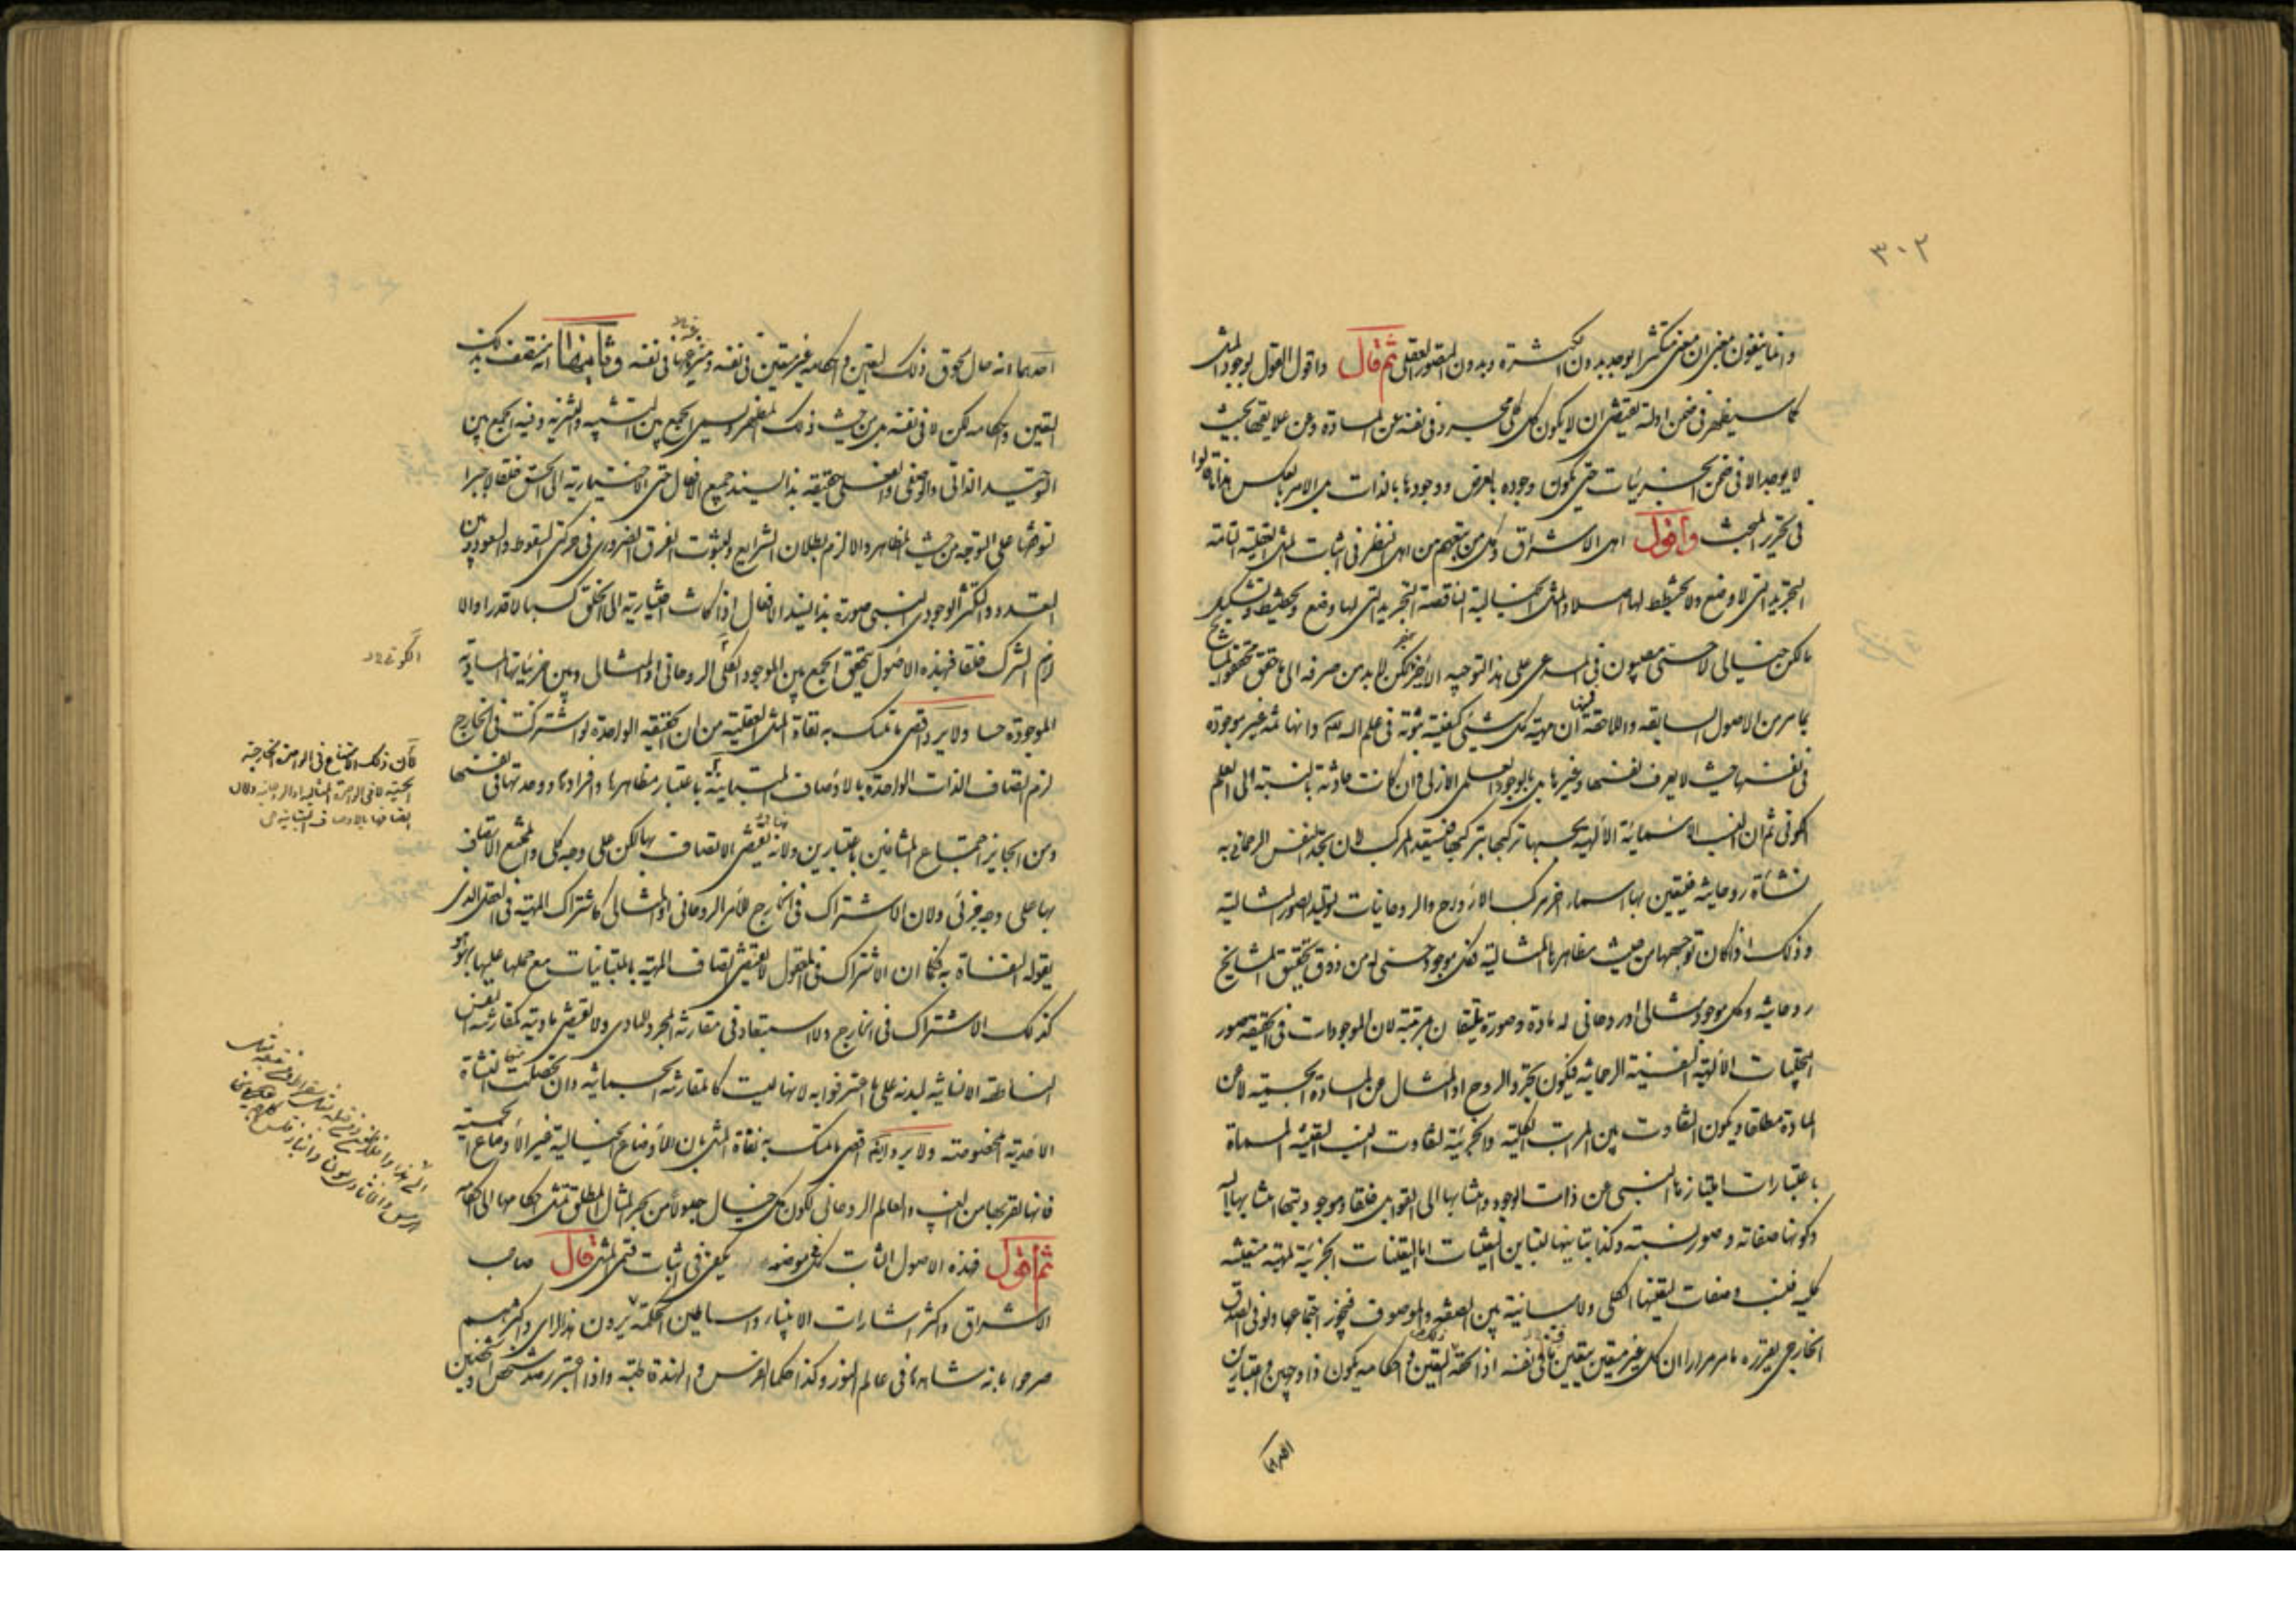 ٣٠٢
وانما ينفون معنى ان معنى متكثرا يوجد بدون الكثرة وبدون التصور العقلى ثم قال واقول القول بوجود المثل
كما سيظهر فى ضمن ادلته يقتضى ان لا يكون كل كلى مجرد فى نفسه عن المادة وعن علايقها بحيث
لا يوجد الا فى ضمن الجزئيات حتى يكون وجوده بالعرض ووجودها بالذات بل الامر بالعكس هذا ما قالوا
فى تحرير المبحث واقول اهل الاشراق وكل من يتبعهم من اهل النظر فى اثبات المثل العقلية التامة
التجريد التى لا وضع ولا تخطيط لها اصلا والمثل الخيالية الناقصة التجريد التى لها وضع وتخطيط وتشكيل
لكن خيالى لا حسى مصيبون فى المدعى على هذا التوجيه الاخير لكن لا بد من صرفه الى ما حقق محققوا المشايخ
بما مر من الاصول السابقة واللاحقة ان مهية كل شئ كيفية ثبوته فى علم الله وانها ثمه غير موجودة
فى نفسها حيث لا يعرف نفسها وغيرها بل بالوجود العلمى الازلى وان كانت حادثة بالنسبة الى العلم
الكونى ثم ان النسب الاسمائية الالهية بحسبها تركبها بتركيبها لان بتجلد النفس الرحمانى به
نشأة روحانية فيتعين بها اسماء اخر مركب الارواح والروحانيات لتوليد الصور المثالية
وذلك اذا كان توجهها من حيث مظاهرها المثالية فكل موجود حسى له من ذوق تحقيق المشايخ
روحانية وكل موجود مثالى او روحانى له مادة وصورة يليقان مرتبته لان الموجودات فى الحقيقة صور
التجليات الالهية النفسية الرحمانية فيكون تجرد الروح او المثال عن المادة الحسية لا عن
المادة مطلقا ويكون التفاوت بين المراتب الكلية والجزئية لتفاوت النسب التعينية المسماة
باعتبارات امتيازها النسبى عن ذات الوجود وانتسابها الى القوابل خلقا وموجوديتها بانتسابها اليه
وكونها صفاته وصور نسبته وكذا تباينها لتباين التعينات اما التعينات الجزئية لمهية متعينة
كلية فنسب وصفات لتعينها الكلى ولا مباينة بين الصفة والموصوف فيجوز اجتماعها ولو فى الصدق
الخارجى يقرره ما مر مرارا ان كل غير متعين بتعين ما فى نفسه اذا لحقه التعين واحكامه يكون ذا وجهين واعتبارين
احدهما
احدهما انه حال لحوق ذلك التعين واحكامه غير متعين فى نفسه ومنزه عنها فى نفسه وثانيهما انه متصف بذلك
التعين واحكامه لكن لا فى نفسه بل من حيث ذلك المظهر وليس الجمع بين التشبيه والتنزيه وفيه الجمع بين
التوحيد الذاتى والوصفى والفعلى حقيقة بذا يسند جميع الافعال حتى الاختيارية الى الحق خلقا لا جبرا
لتوقفها على التوجه من حيث المظاهر والا لزم بطلان الشرايع ولثبوت الفرق الضرورى فى حركتى السقوط والصعود وبين
التعدد والتكثر الوجودى النسبى صورة بذا يسند الافعال اذا كانت اختيارية الى الخلق كسبا لا قدرا والا
لزم الشرك خلقا فبهذه الاصول يتحقق الجمع بين الموجود الكلى الروحانى او المثالى وبين جزئياتها المادية
الموجودة حسا ولا يرد اقوى ما تمسك به نفاة المثل العقلية من ان الحقيقة الواحدة لو اشتركت فى الخارج
لزم اتصاف الذات الواحدة بالاوصاف المتباينة باعتبار مظاهرها وافرادها ووحدتها فى نفسها
ومن الجايز اجتماع المتنافيين باعتبارين ولانه يقتضى الاتصاف بها لكن على وجه كلى والممتنع الاتصاف
بها على وجه جزئى ولان الاشتراك فى الخارج للامر الروحانى او المثالى كاشتراك المهية فى العقل الذى
يقوله النفاة به فكما ان الاشتراك فى المعقول لا يقتضى اتصاف المهية بالمتباينات مع حملها عليها بهو هو
كذلك الاشتراك فى الخارج ولا استبعاد فى مقارنة المجرد للمادى ولا يقتضى ماديته كمقارنة النفس
الناطقة الانسانية لبدنه على ما اعترفوا به لانها ليست كالمقارنة الجسمانية وان تحصلت منها النشأة
الاحدية المختومة ولا يرد ايضا اقوى ما تمسك به نفاة المثل بان الاوضاع الخيالية غير الاوضاع الحسية
فانها لقربها من الغيب والعالم الروحانى لكون كل خيال جدولا من بحر المثال المطلق تمشى احكامها الى احكامه
ثم اقول فهذه الاصول الثابت كل فى موضعه يكفى فى اثبات قسمى المثل قال صاحب
الاشراق واكثر اشارات الانبياء واساطين الحكمة يرون هذا الراى واكثرهم
صرحوا بانه شاهدها فى عالم النور وكذا حكماء الفرس والهند قاطبة واذا اعتبر رصد شخص او شخصين
الكونى
لان ذلك الامتناع فى الواحدة الخارجية
الحسية لا فى الواحدة المثالية او الروحانية ولان
اتصافها بالاوصاف المتباينة